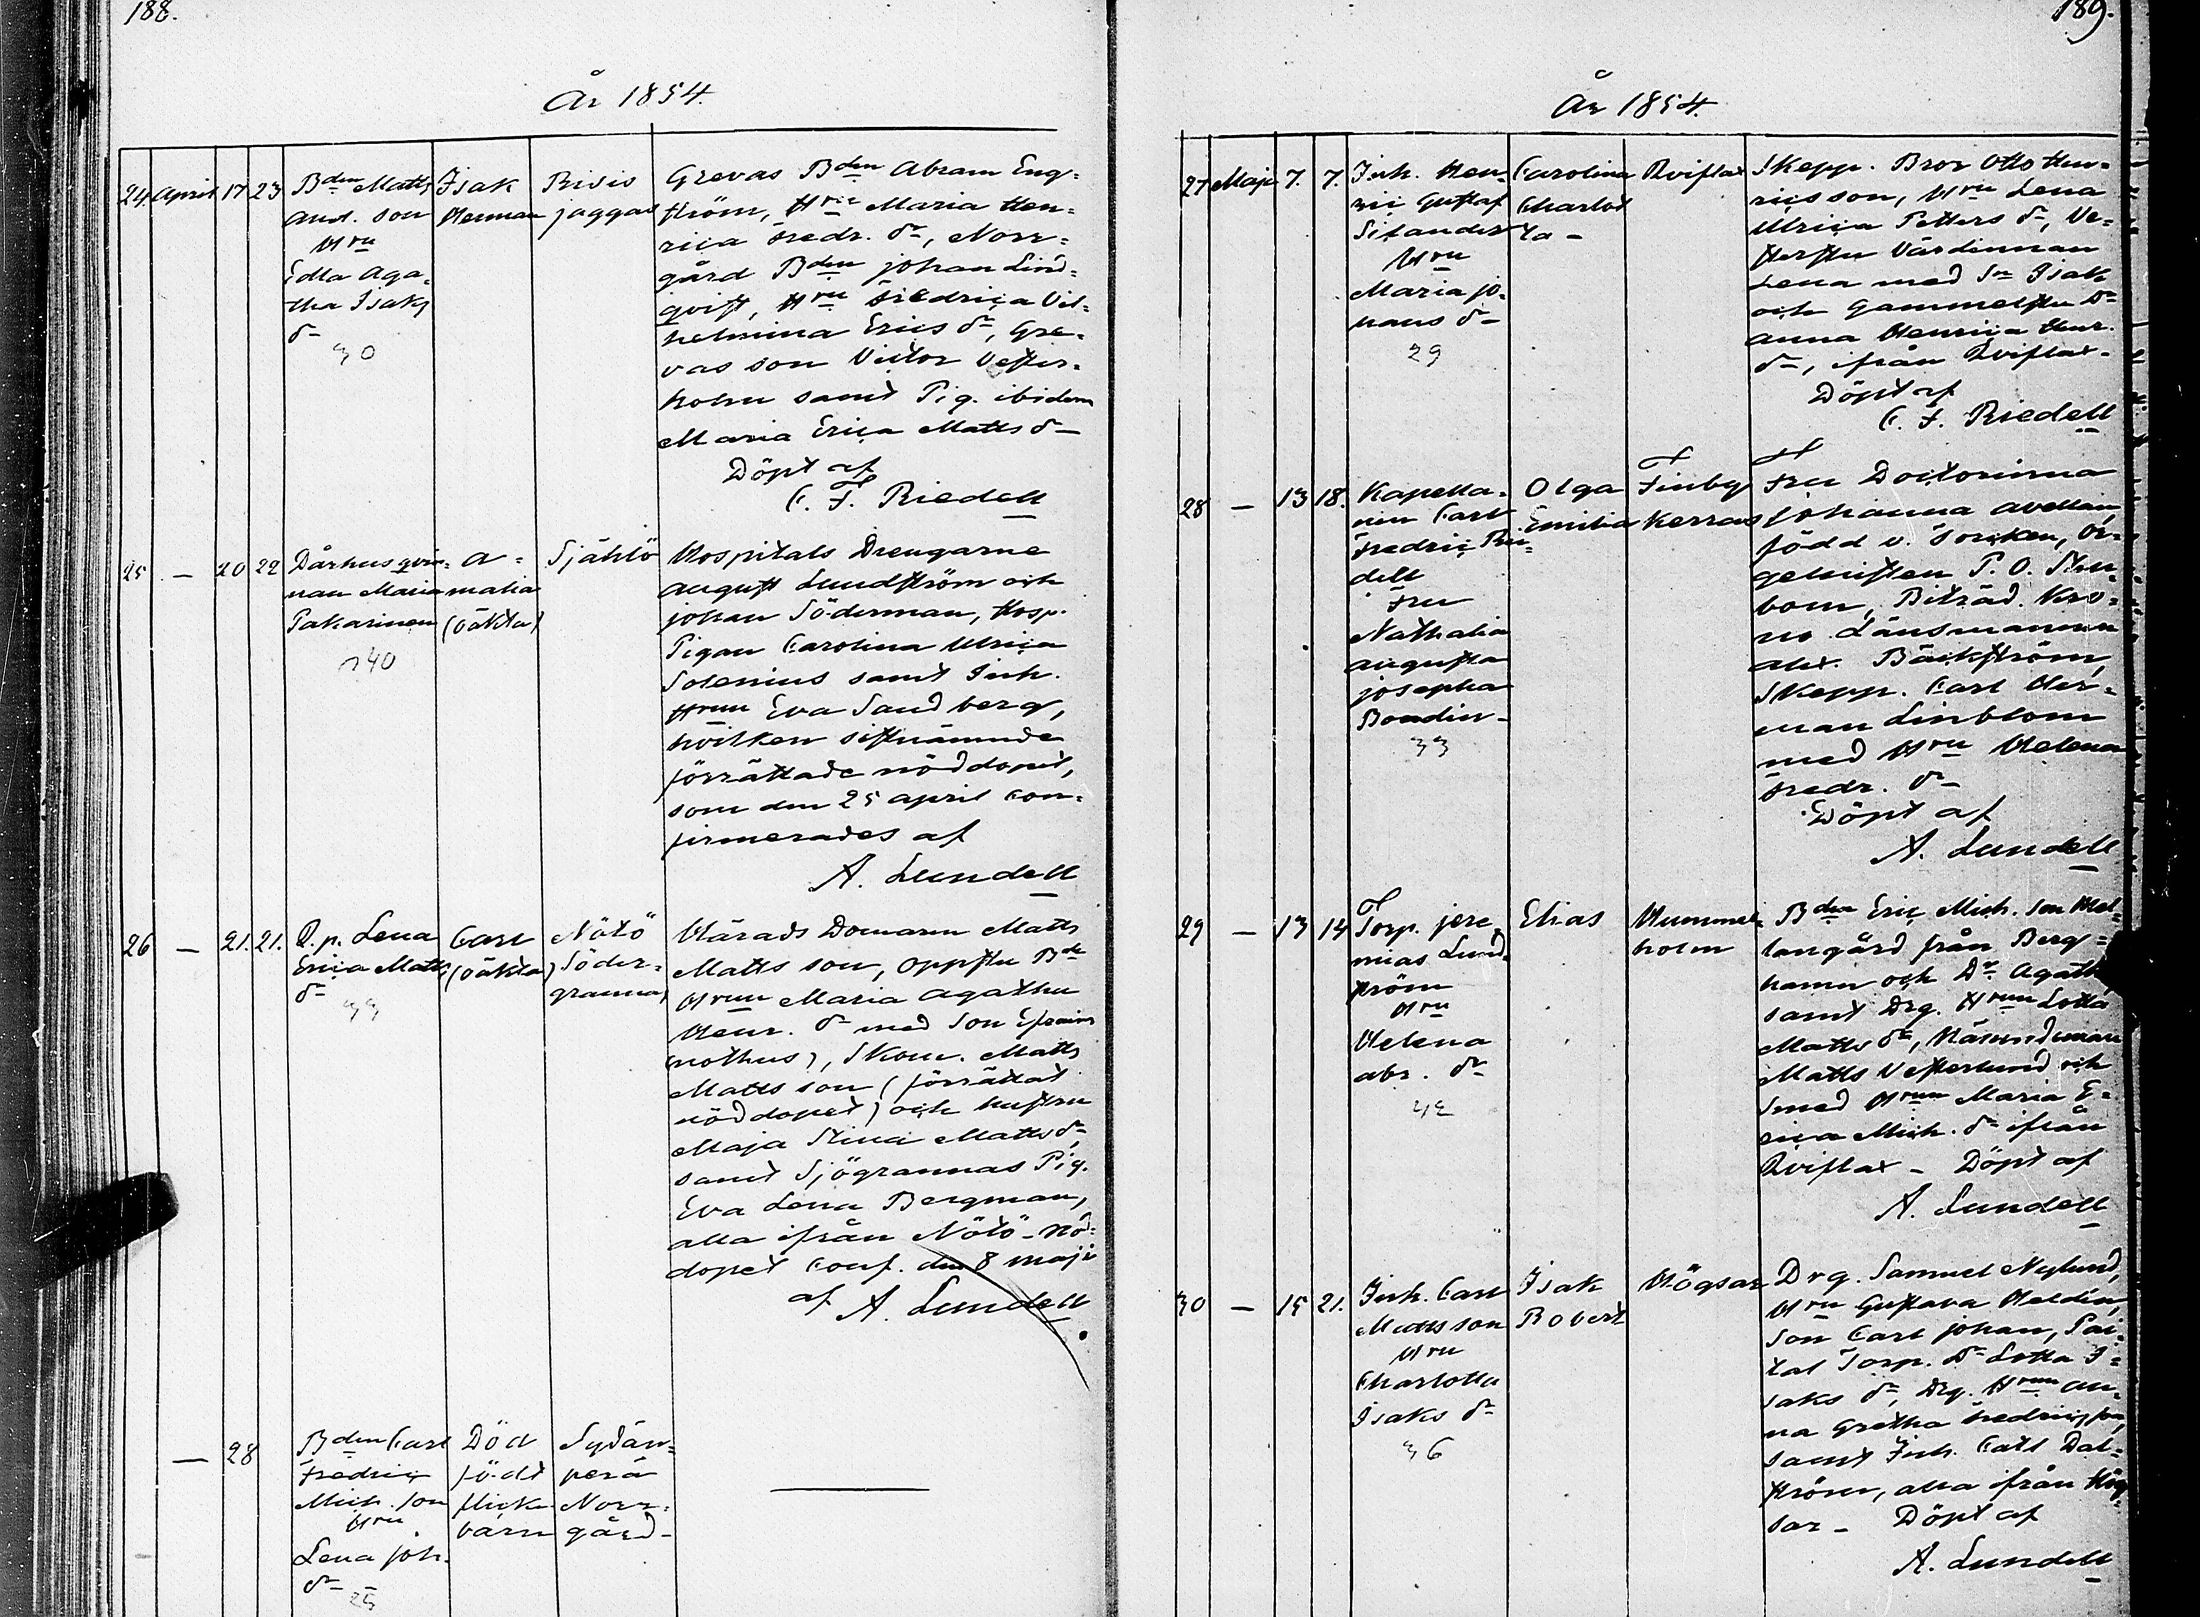 188.
År 1854.
24 April 17 23
Bden Matts
And. son
Hru
Edla Aga-
tha Isaks
dr
30
Isak
Herman
Risis
jaggas
Grevas Bden Abram Eng-
ström, Hru Maria Hen-
rica Fredr. dr, Norr-
gård Bden Johan Lind-
qvist, Hru Fredrica Vil-
helmina Erics dr, Gre-
vas son Victor Vester-
holm samt Pig. ibidem
Maria Erica Matts dr
Döpt af
C. F. Riedell
25 — 20 22
Dårhusqvin-
nan Maria
Pakarinen
40
A-
malia
(oäkta)
Själö
Hospitals Drengarne
August Lundström och
Johan Söderman, Hosp.
Pigan Carolina Ulrica
Solenius samt Inh.
Hrun Eva Sandberg,
hvilken sistnämnde
förrättade nöddopet,
som den 25 April con-
firmerades af
A. Lundell
26 — 21. 21.
Q. p. Lena
Erica Matts
dr
Carl
(oäkta)
Nötö
Söder-
grannas
Härads Domarn Matts
Matts son, Oppstu Bde
Hrun Maria Agatha
Henr. dr med son Efraim
(nothus), Skom. Matts
Matts son (förrättat
nöddopet) och hustru
Maja Stina Matts dr
samt Sjögrannas Pig.
Eva Lena Bergman,
alla ifrån Nötö - Nöd-
dopet conf. den 8 Maji
af A. Lundell
— 28
Bden Carl
Fredric
Mich. son
Hru
Lena Joh.
dr
25
Död
född
flicke
barn
Sydän-
perä
Norr-
gård -
189.
År 1854.
27 Maji 7. 7.
Inh. Hen-
ric Gustaf
Silander
Hru
Maria Jo-
hans dr
29
Carolina
Charlot
ta -
Qviflax
Skepp. Bror Otto Hen-
ricsson, Hru Lena
Ulrica Petters dr, Ve-
sterstu Värdinnan
Lena med Sn Isak
och Gammelstu dr
Anna Henrica Henr.
dr, ifrån Qviflax -
Döpt af
C. F. Riedell
28 — 13 18.
Kapella-
nen Carl
Fredric Rie-
dell
Fru
Nathalia
Augusta
Josepha
Bondin -
33
Olga
Emilia
Finby
Kerrans
Fru Doctorinna
Johanna Avellan,
född v. Soricken, Or-
gelnisten P. O. Sten-
bom, Biträd. Kro-
no Länsmannen
Alex. Bäckström,
Skepp. Carl Her-
man Linblom
med Hru Helena
Fredr. dr
Döpt af
A. Lundell
29 — 13 14
Torp. Jere-
mias Lund-
ström
Hru
Helena
Abr. dr
42
Elias
Hummel-
holm
Bden Eric Mich. son Mel-
langård från Berg-
hamn och Dr Agatha
samt Drg. Hrun Lotta
Matts dr,
Matts Vesterlund och
Smed Hrun Maria E-
rica Mich. dr ifrån
Qviflax - Döpt af
A. Lundell
30 — 15 21.
Inh. Carl
Matts son
Hru
Charlotta
Isaks dr
36
Isak
Robert
Högsar
Drg. Samuel Nylund,
Hru Gustava Heldin,
Son Carl Johan, Pai-
tal Torp. Dr Lotta I-
saks dr, Drg. Hrun An-
na Gretha
samt Inh. Carl Dal-
ström, alla ifrån Hög-
sar - Döpt af
A. Lundell